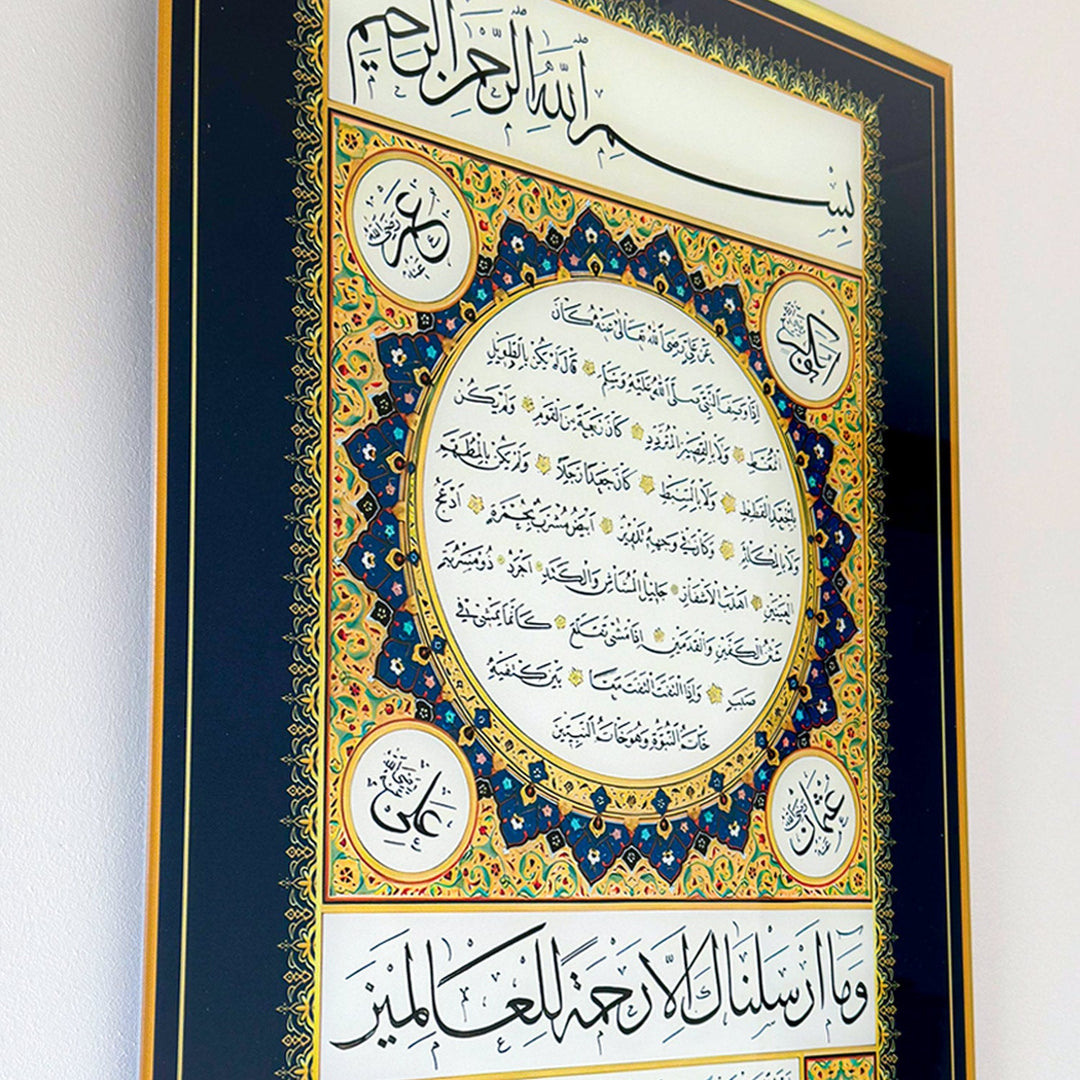 بِسْمِ اللهِ الرَّحْمٰنِ الرَّحِيمِ
ابوبكر رضي الله عنه
عمر رضي الله عنه
عَنْ عَلِيٍّ رَضِيَ اللهُ تَعَالَى عَنْهُ كَانَ
اِذَا وَصَفَ النَّبِيَّ صَلَّى اللهُ عَلَيْهِ وَسَلَّمَ قَالَ لَمْ يَكُنْ بِالطَّوِيلِ
الْمُمَّغِطِ وَلَا بِالْقَصِيرِ الْمُتَرَدِّدِ كَانَ رَبْعَةً مِنَ الْقَوْمِ وَلَمْ يَكُنْ
بِالْجَعْدِ الْقَطَطِ وَلَا بِالسَّبِطِ كَانَ جَعْدًا رَجِلًا وَلَمْ يَكُنْ بِالْمُطَهَّمِ
وَلَا بِالْمُكَلْثَمِ وَكَانَ فِي وَجْهِهِ تَدْوِيرٌ اَبْيَضُ مُشْرَبٌ بِحُمْرَةٍ اَدْعَجُ
الْعَيْنَيْنِ اَهْدَبُ الْاَشْفَارِ جَلِيلُ الْمُشَاشِ وَالْكَتَدِ اَجْرَدُ ذُو مَسْرُبَةٍ
شَثْنُ الْكَفَّيْنِ وَالْقَدَمَيْنِ اِذَا مَشَى تَقَلَّعَ كَاَنَّمَا يَمْشِي فِي
صَبَبٍ وَاِذَا الْتَفَتَ الْتَفَتَ مَعًا بَيْنَ كَتِفَيْهِ
خَاتَمُ النُّبُوَّةِ وَهُوَ خَاتَمُ النَّبِيِّينَ
عثمان رضي الله عنه
علي رضي الله عنه
وَمَا اَرْسَلْنَاكَ اِلَّا رَحْمَةً لِلْعَالَمِينَ